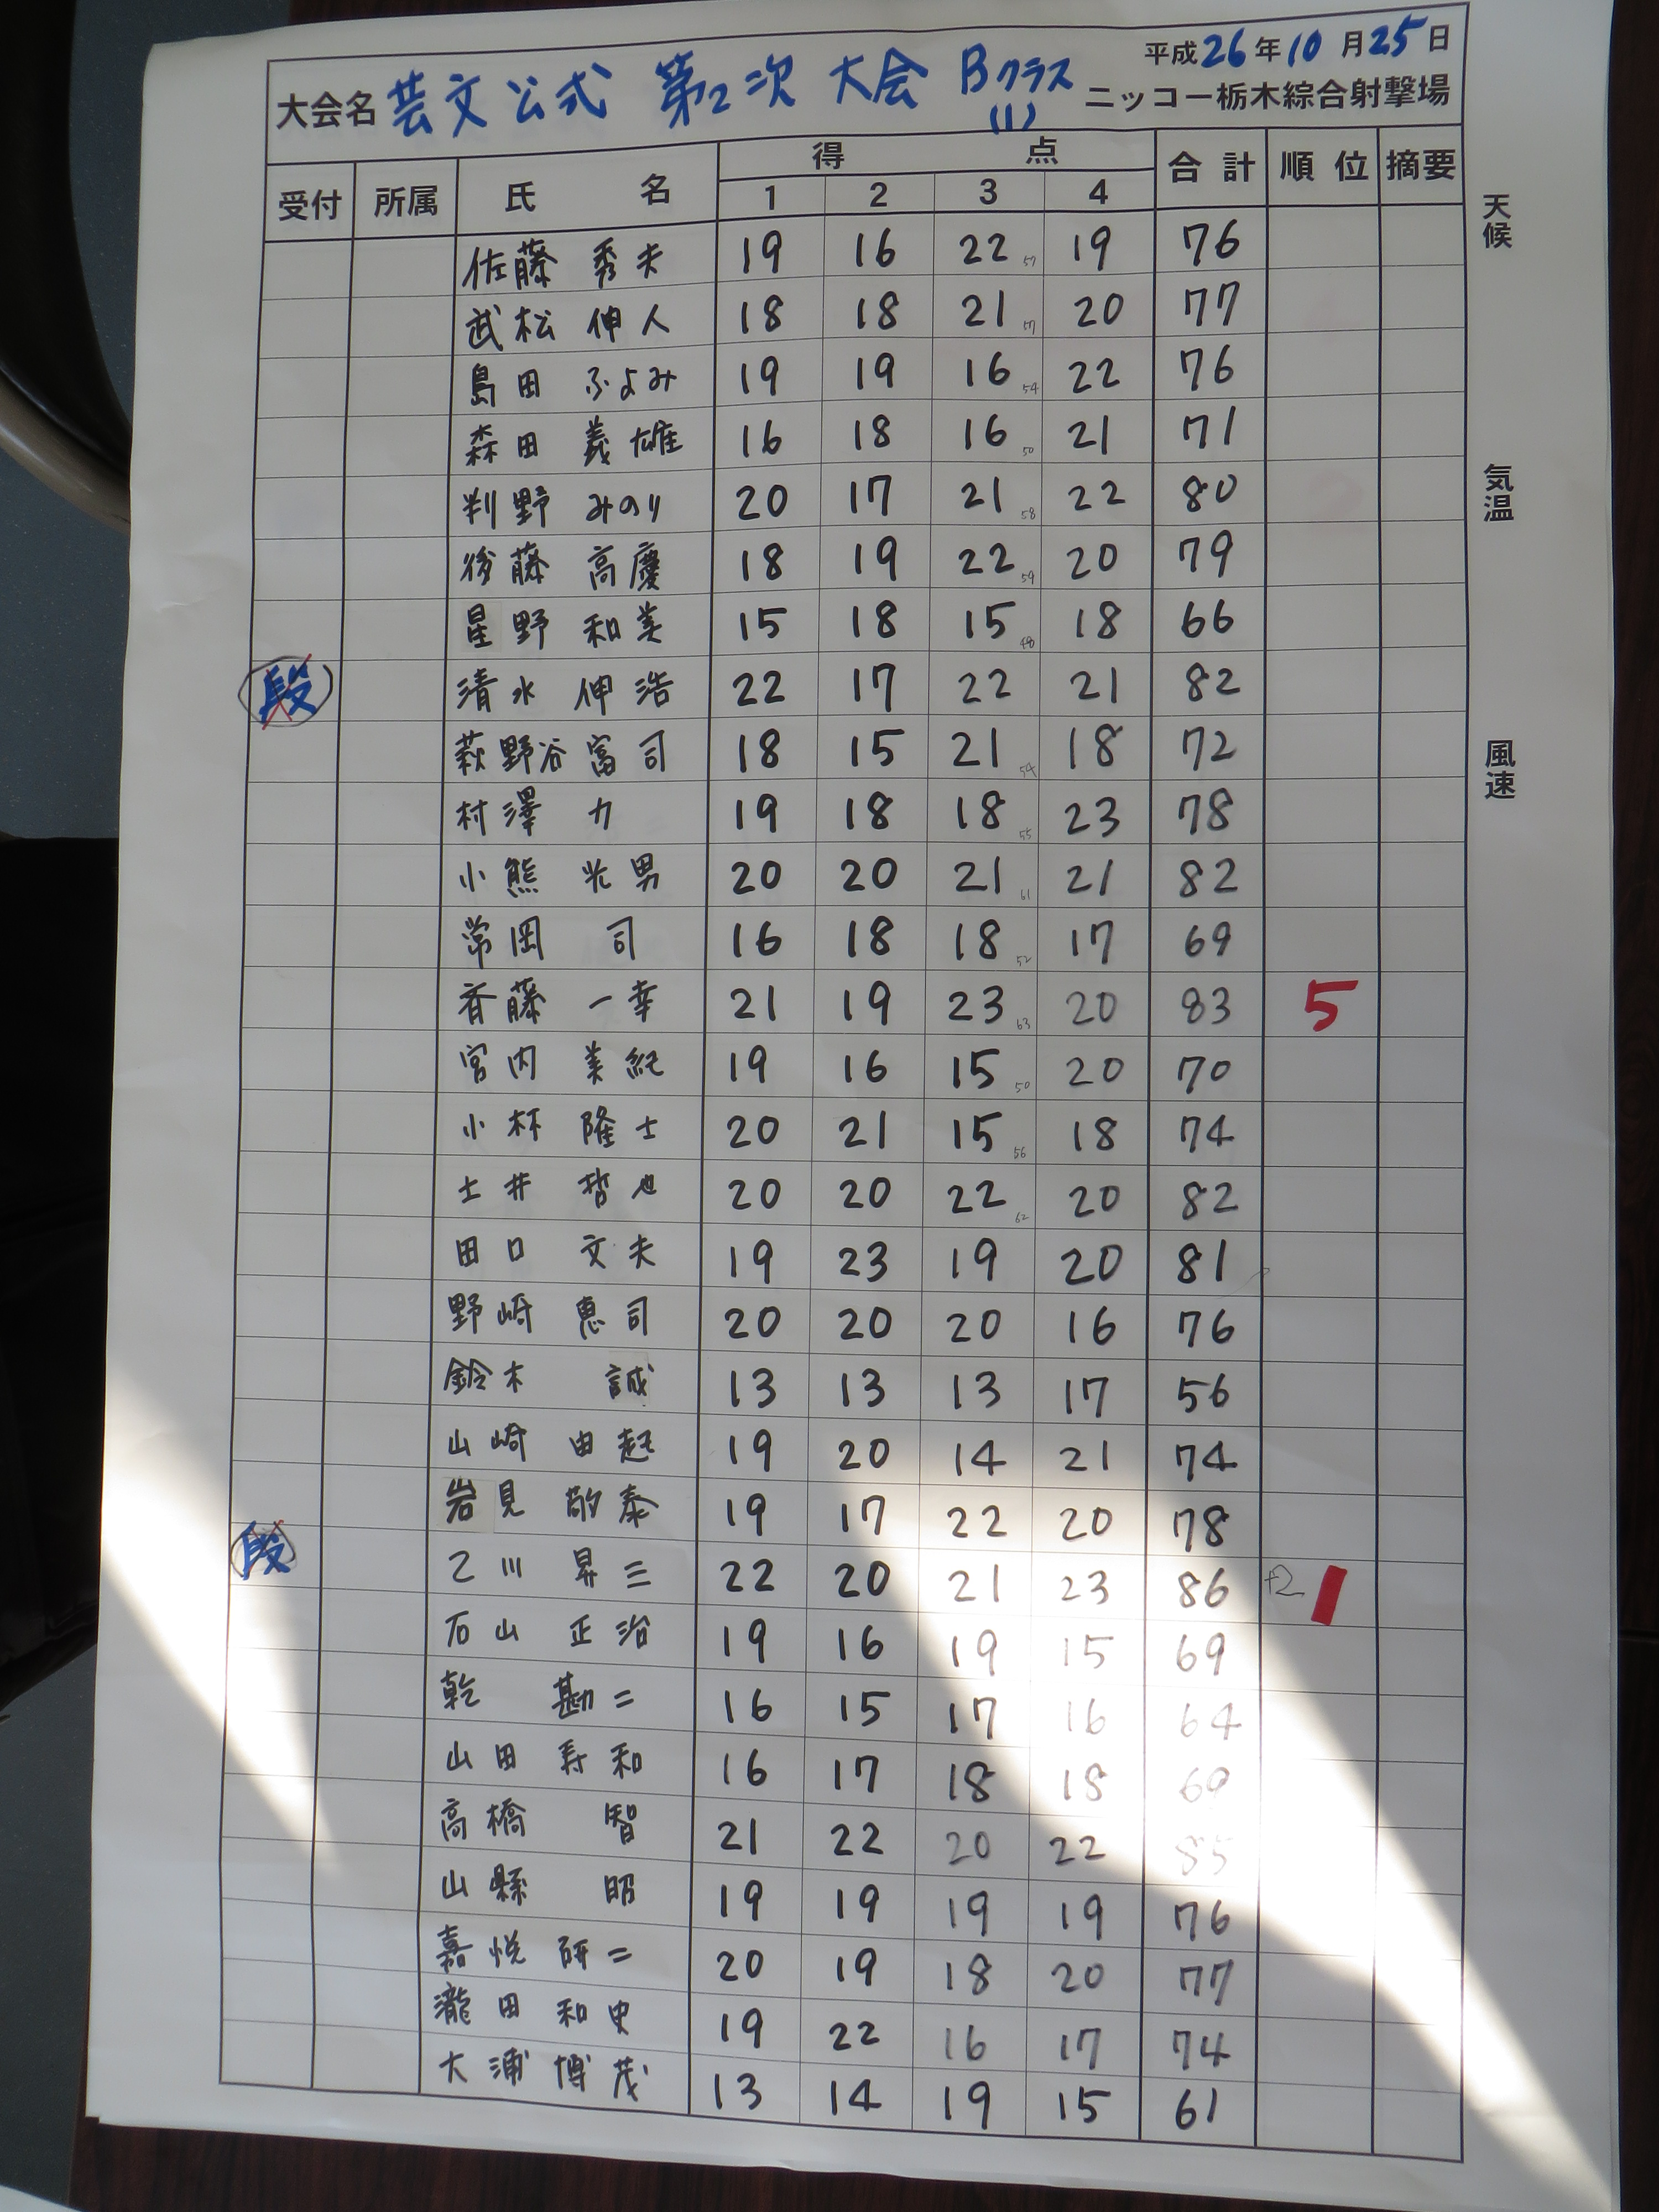 平成26年10月25日
大会名 芸文公式 第2次 大会 Bクラス ニッコー栃木綜合射撃場
(1)
受付 所属 氏名 得点 合計 順位 摘要
1 2 3 4
天候
気温
風速
佐藤 秀夫 19 16 22 57 19 76
武松 伸人 18 18 21 57 20 77
島田 ふよみ 19 19 16 54 22 76
森田 義雄 16 18 16 50 21 71
判野 みのり 20 17 21 58 22 80
後藤 高慶 18 19 22 59 20 79
星野 和美 15 18 15 48 18 66
段 清水 伸浩 22 17 22 21 82
萩野谷 富司 18 15 21 54 18 72
村澤 力 19 18 18 55 23 78
小熊 光男 20 20 21 61 21 82
常岡 司 16 18 18 52 17 69
斉藤 一幸 21 19 23 63 20 83 5
宮内 美紀 19 16 15 50 20 70
小林 隆士 20 21 15 56 18 74
土井 哲也 20 20 22 62 20 82
田口 文夫 19 23 19 20 81
野崎 恵司 20 20 20 16 76
鈴木 誠 13 13 13 17 56
山崎 由起 19 20 14 21 74
岩見 敬泰 19 17 22 20 78
段 乙川 昇三 22 20 21 23 86 +2 1
石山 正治 19 16 19 15 69
乾 勘二 16 15 17 16 64
山田 寿和 16 17 18 18 69
高橋 智 21 22 20 22 85
山縣 昭 19 19 19 19 76
嘉悦 研二 20 19 18 20 77
瀧田 和史 19 22 16 17 74
大浦 博茂 13 14 19 15 61